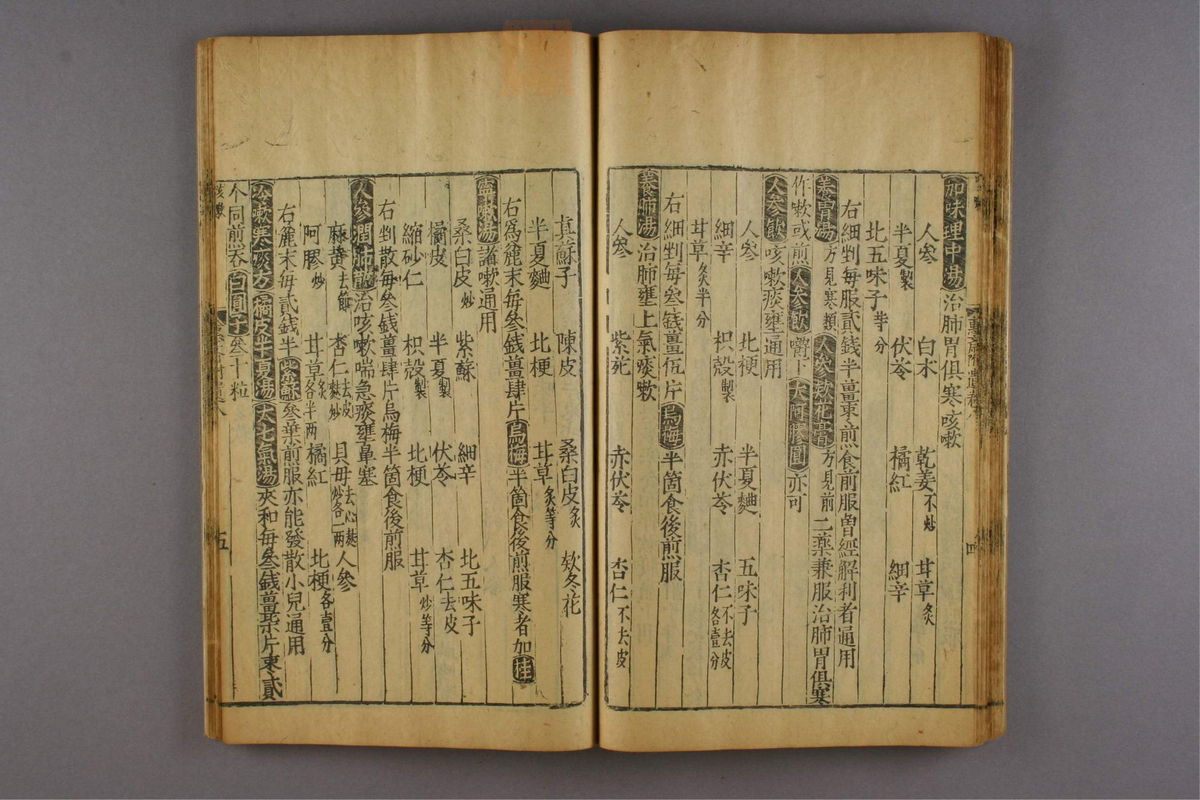 加味理中湯治肺胃俱寒咳嗽
人參 白朮 乾姜不炒 甘草炙
半夏製 伏苓 橘紅 細辛
北五味子等分
右細剉每服貳錢半薑棗煎食前服曾經解利者通用
養胃湯方見寒類 人參款花膏方見前二藥兼服治肺胃俱寒
作嗽或煎人參飲嚼下大阿膠圓亦可
人參飲咳嗽痰壅通用
人參 北梗 半夏麯 五味子
細辛 枳殼製 赤伏苓 杏仁不去皮各壹分
甘草炙半分
右細剉每叁錢薑伍片烏梅半箇食後煎服
養肺湯治肺壅上氣痰嗽
人參 紫苑 赤伏苓 杏仁不去皮
真蘇子 陳皮 桑白皮炙 欵冬花
半夏麯 北梗 甘草炙等分
右爲麄末每叁錢薑肆片烏梅半箇食後煎服寒者加桂
寧嗽湯諸嗽通用
桑白皮炒 紫蘇 細辛 北五味子
橘皮 半夏製 伏苓 杏仁去皮
縮砂仁 枳殼製 北梗 甘草炒等分
右剉散每叁錢薑肆片烏梅半箇食後煎服
人參潤肺散治咳嗽喘急痰壅鼻塞
麻黄去節 杏仁去皮麩炒 貝母去心麸炒各一兩 人參
阿膠炒 甘草炙各半兩 橘紅 北梗各壹分
右麄末每貳錢半紫蘇叁葉煎服亦能發散小兒通用
嗽寒痰方橘皮半夏湯大七氣湯夾和每叁錢薑柒片棗貳
个同煎吞百圓子叁十粒
咳嗽
五